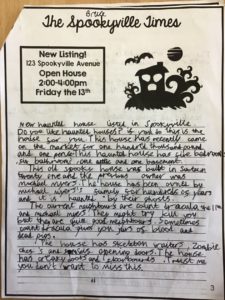 Grace
The Spookyville Times
New Listing!
123 Spookyville Avenue
Open House
2:00-4:00pm
Friday the 13th
New haunted house listed in Spookyville
Do you like haunted houses? If you do this is the
house for you. This house has recently come
on the market for one hundred thousand pound
and one pence. This haunted house has five bedrooms
six bathrooms one attic and one basement.
This old spooky house was built in sixteen
twenty one and the owner was
michael myers. The house has been owned by
michael myers family for hundreds of years
and it is haunted by their ghosts.
The current neighbours are count dracula
and michael myers. They might try kill you
but they are quite good neighbours. Sometimes
count dracula give you jars of blood and
dead pigs.
The house has skeleton waiters, zombie
chefs and opening doors. The house
has creaky doors and floorboards. Trust me
you don't want to miss this.
3